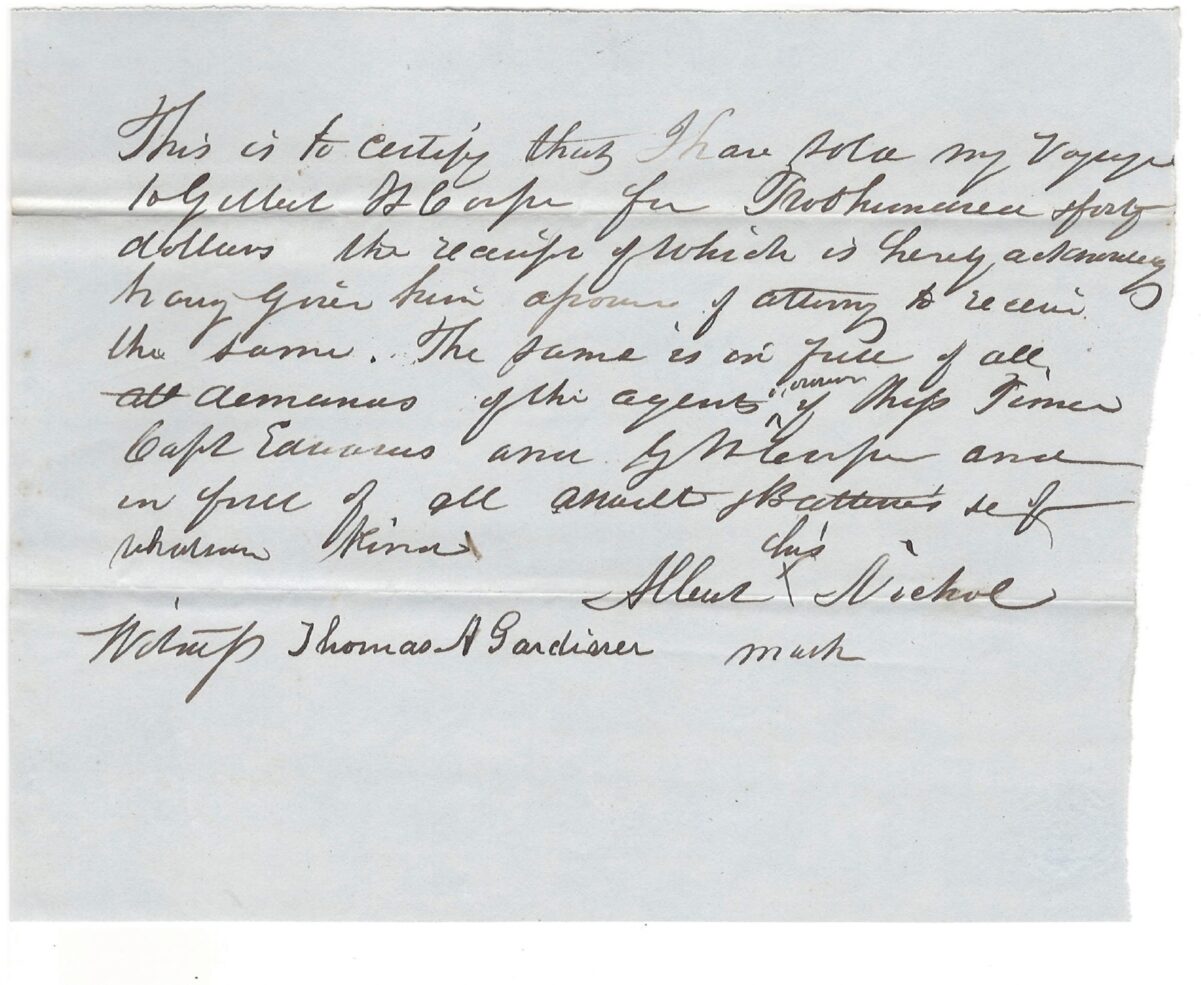 This is to certify that I have sold my Voyage
to Gilbert H Cooper for Two hundred & forty
dollars the receipt of which is herby acknowledg
having Given him a power of attorny to receive
the same. The same is in full of all
all demands of the agents & owners of Ship Timor
Capt Edwards and G H Cooper and
in full of all assault & Batteries &c of
whatever Kind
Albert his X Nickol
mark
Witness Thomas A Gardiner